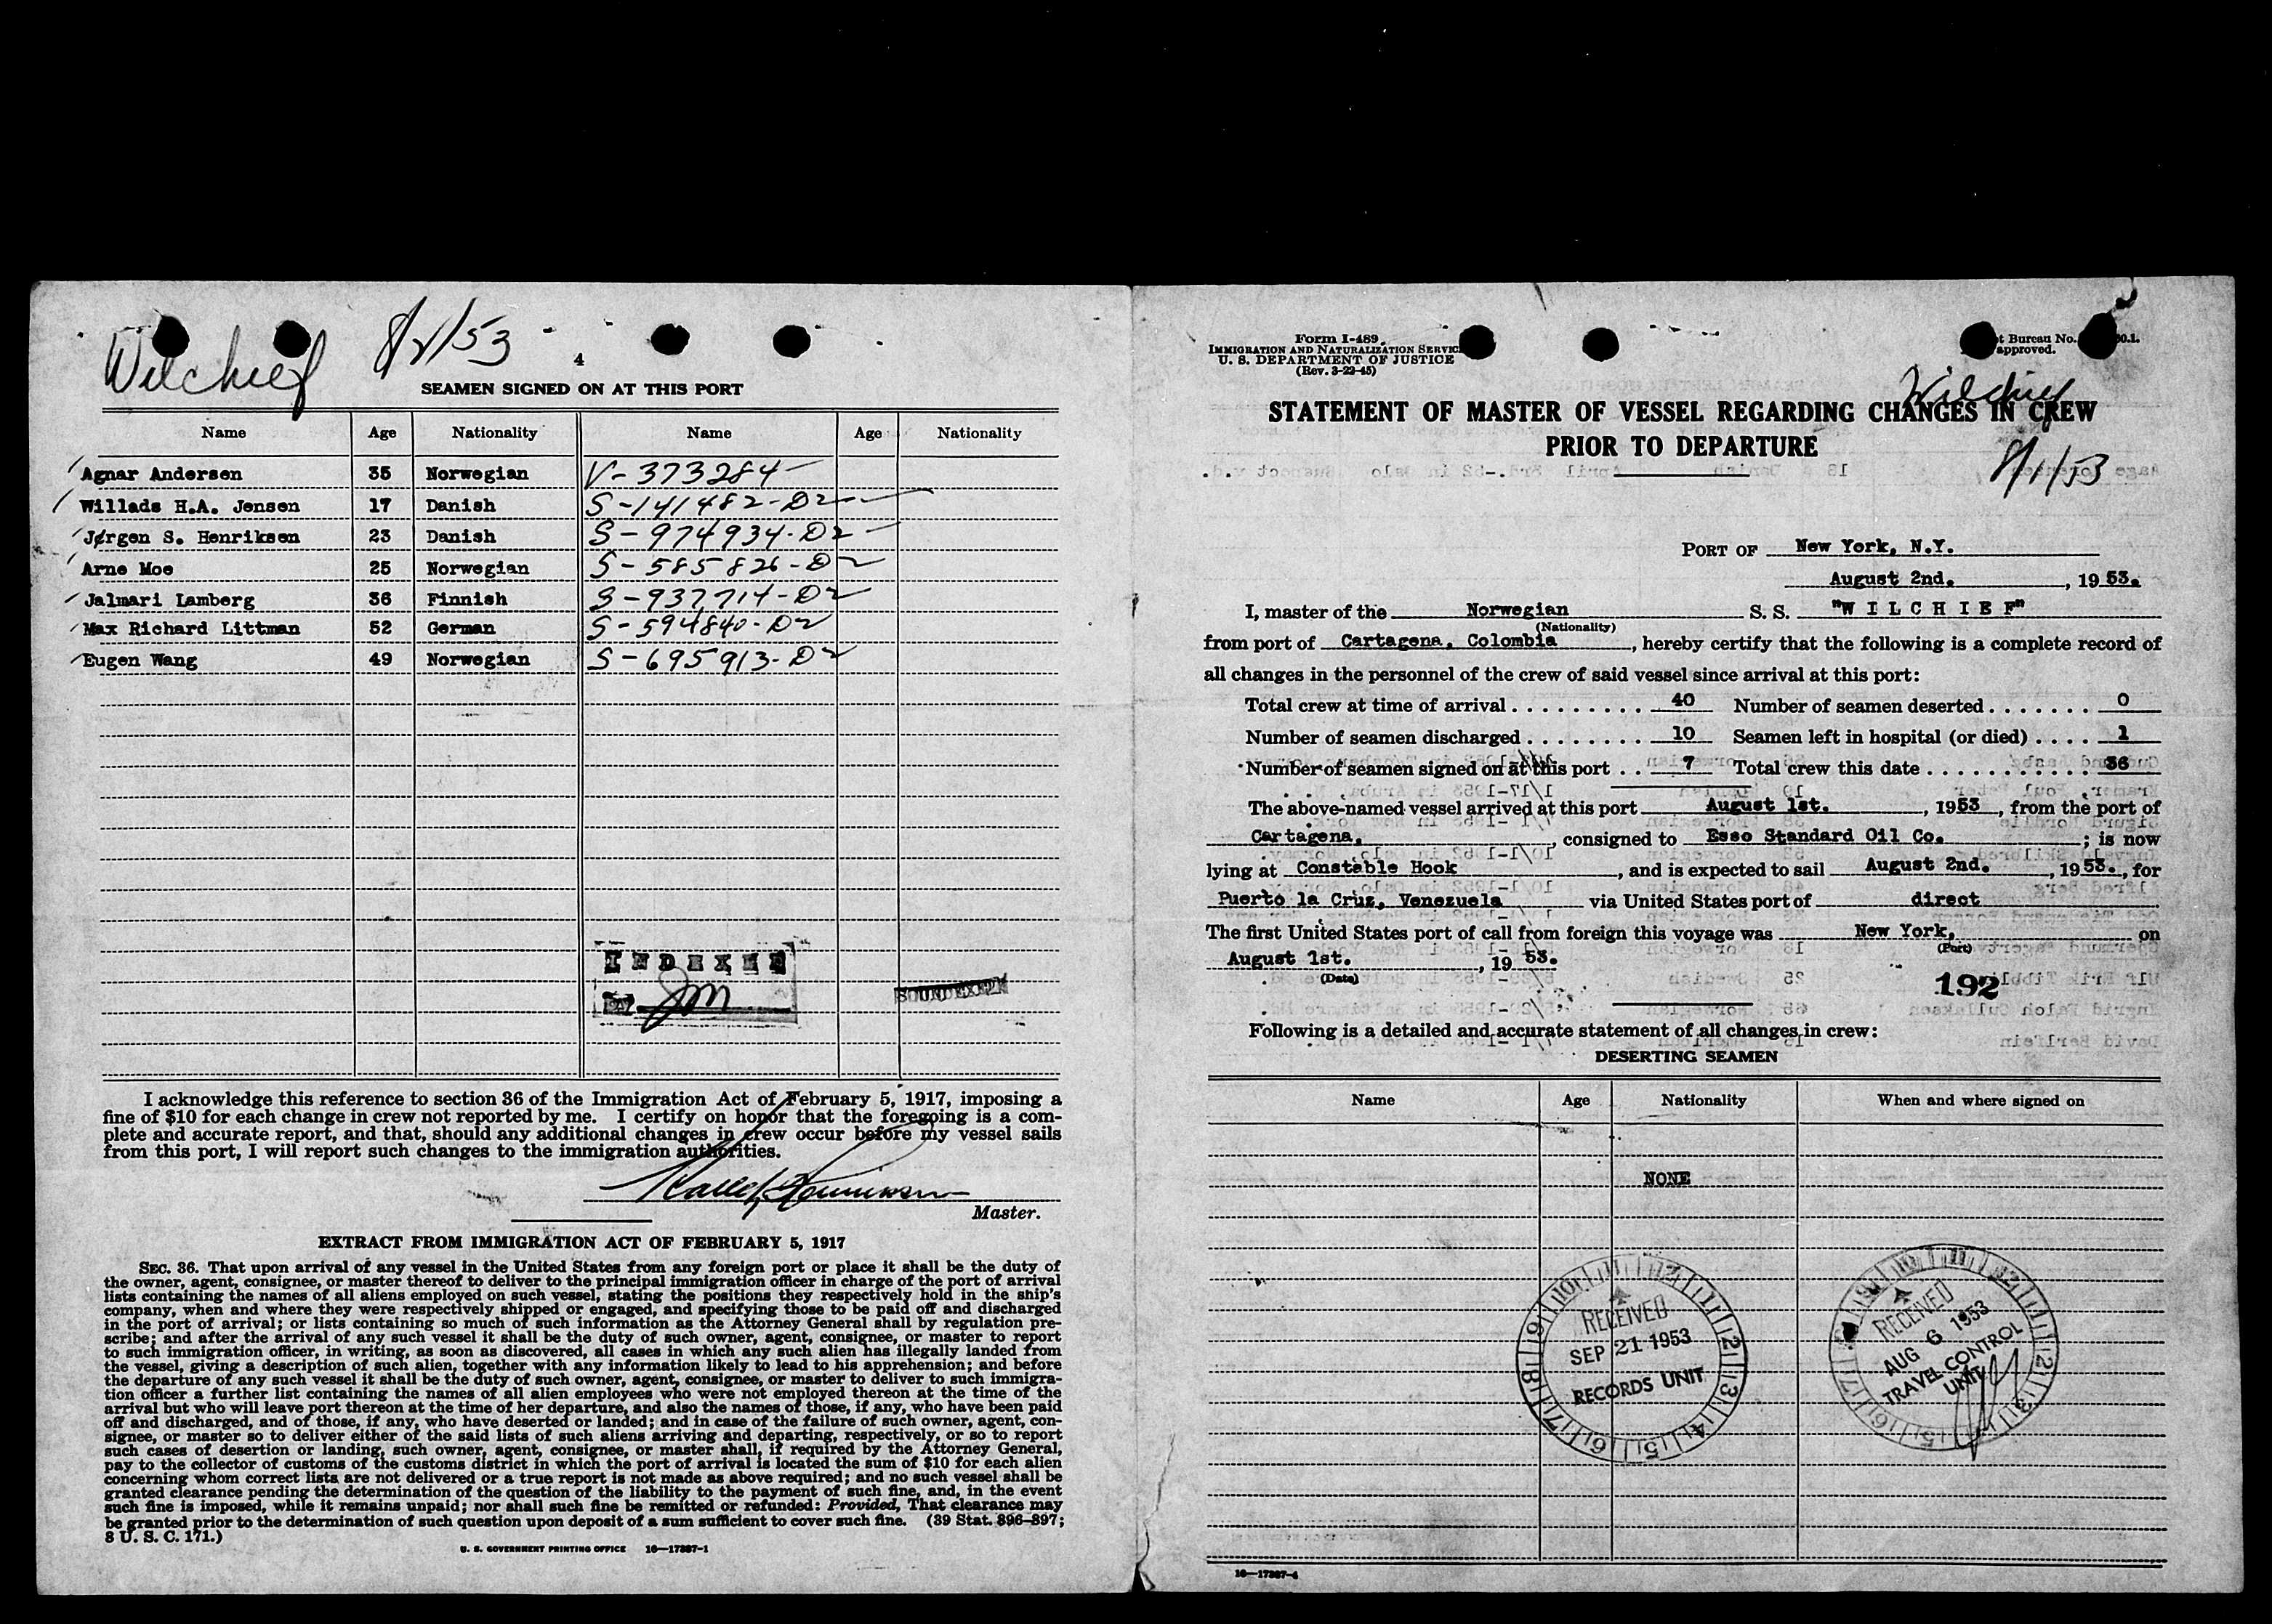 Wilchief 8/2/53
4
SEAMEN SIGNED ON AT THIS PORT
Name Age Nationality Name Age Nationality
Agnar Andersen 35 Norwegian V-373284
Willads H.A. Jensen 17 Danish S-141482-D2
Jørgen S. Henriksen 23 Danish S-974934-D2
Arne Moe 25 Norwegian S-585826-D2
Jalmari Lamberg 36 Finnish S-937714-D2
Max Richard Littman 52 German S-594840-D2
Eugen Wang 49 Norwegian S-695913-D2
INDEXED
BY
SOUNDEXED
I acknowledge this reference to section 36 of the Immigration Act of February 5, 1917, imposing a
fine of $10 for each change in crew not reported by me. I certify on honor that the foregoing is a com-
plete and accurate report, and that, should any additional changes in crew occur before my vessel sails
from this port, I will report such changes to the immigration authorities.
Master.
EXTRACT FROM IMMIGRATION ACT OF FEBRUARY 5, 1917
SEC. 36. That upon arrival of any vessel in the United States from any foreign port or place it shall be the duty of
the owner, agent, consignee, or master thereof to deliver to the principal immigration officer in charge of the port of arrival
lists containing the names of all aliens employed on such vessel, stating the positions they respectively hold in the ship's
company, when and where they were respectively shipped or engaged, and specifying those to be paid off and discharged
in the port of arrival; or lists containing so much of such information as the Attorney General shall by regulation pre-
scribe; and after the arrival of any such vessel it shall be the duty of such owner, agent, consignee, or master to report
to such immigration officer, in writing, as soon as discovered, all cases in which any such alien has illegally landed from
the vessel, giving a description of such alien, together with any information likely to lead to his apprehension; and before
the departure of any such vessel it shall be the duty of such owner, agent, consignee, or master to deliver to such immigra-
tion officer a further list containing the names of all alien employees who were not employed thereon at the time of the
arrival but who will leave port thereon at the time of her departure, and also the names of those, if any, who have been paid
off and discharged, and of those, if any, who have deserted or landed; and in case of the failure of such owner, agent, con-
signee, or master so to deliver either of the said lists of such aliens arriving and departing, respectively, or so to report
such cases of desertion or landing, such owner, agent, consignee, or master shall, if required by the Attorney General,
pay to the collector of customs of the customs district in which the port of arrival is located the sum of $10 for each alien
concerning whom correct lists are not delivered or a true report is not made as above required; and no such vessel shall be
granted clearance pending the determination of the question of the liability to the payment of such fine, and, in the event
such fine is imposed, while it remains unpaid; nor shall such fine be remitted or refunded: Provided, That clearance may
be granted prior to the determination of such question upon deposit of a sum sufficient to cover such fine. (39 Stat. 896-897;
8 U. S. C. 171.)
U. S. GOVERNMENT PRINTING OFFICE 16—17387-1
Form I-489
IMMIGRATION AND NATURALIZATION SERVICE
U. S. DEPARTMENT OF JUSTICE
(Rev. 3-22-45)
Bureau No.
approved.
Wilchief
STATEMENT OF MASTER OF VESSEL REGARDING CHANGES IN CREW
PRIOR TO DEPARTURE
8/1/53
PORT OF New York, N.Y.
August 2nd. , 19 53.
I, master of the Norwegian S. S. "W I L C H I E F"
(Nationality)
from port of Cartagena, Colombia , hereby certify that the following is a complete record of
all changes in the personnel of the crew of said vessel since arrival at this port:
Total crew at time of arrival . . . . . . . . . 40 Number of seamen deserted . . . . . . . 0
Number of seamen discharged . . . . . . . . 10 Seamen left in hospital (or died) . . . . 1
Number of seamen signed on at this port . . 7 Total crew this date . . . . . . . . . . . 36
The above-named vessel arrived at this port August 1st. , 1953 , from the port of
Cartagena, , consigned to Esso Standard Oil Co. ; is now
lying at Constable Hook , and is expected to sail August 2nd. , 1953. , for
Puerto la Cruz, Venezuela via United States port of direct
The first United States port of call from foreign this voyage was New York, on
(Port)
August 1st. , 19 53.
(Date)
192
Following is a detailed and accurate statement of all changes in crew:
DESERTING SEAMEN
Name Age Nationality When and where signed on
NONE
RECEIVED
SEP 21 1953
RECORDS UNIT
RECEIVED
AUG 6 1953
TRAVEL CONTROL
UNIT
16—17387-4